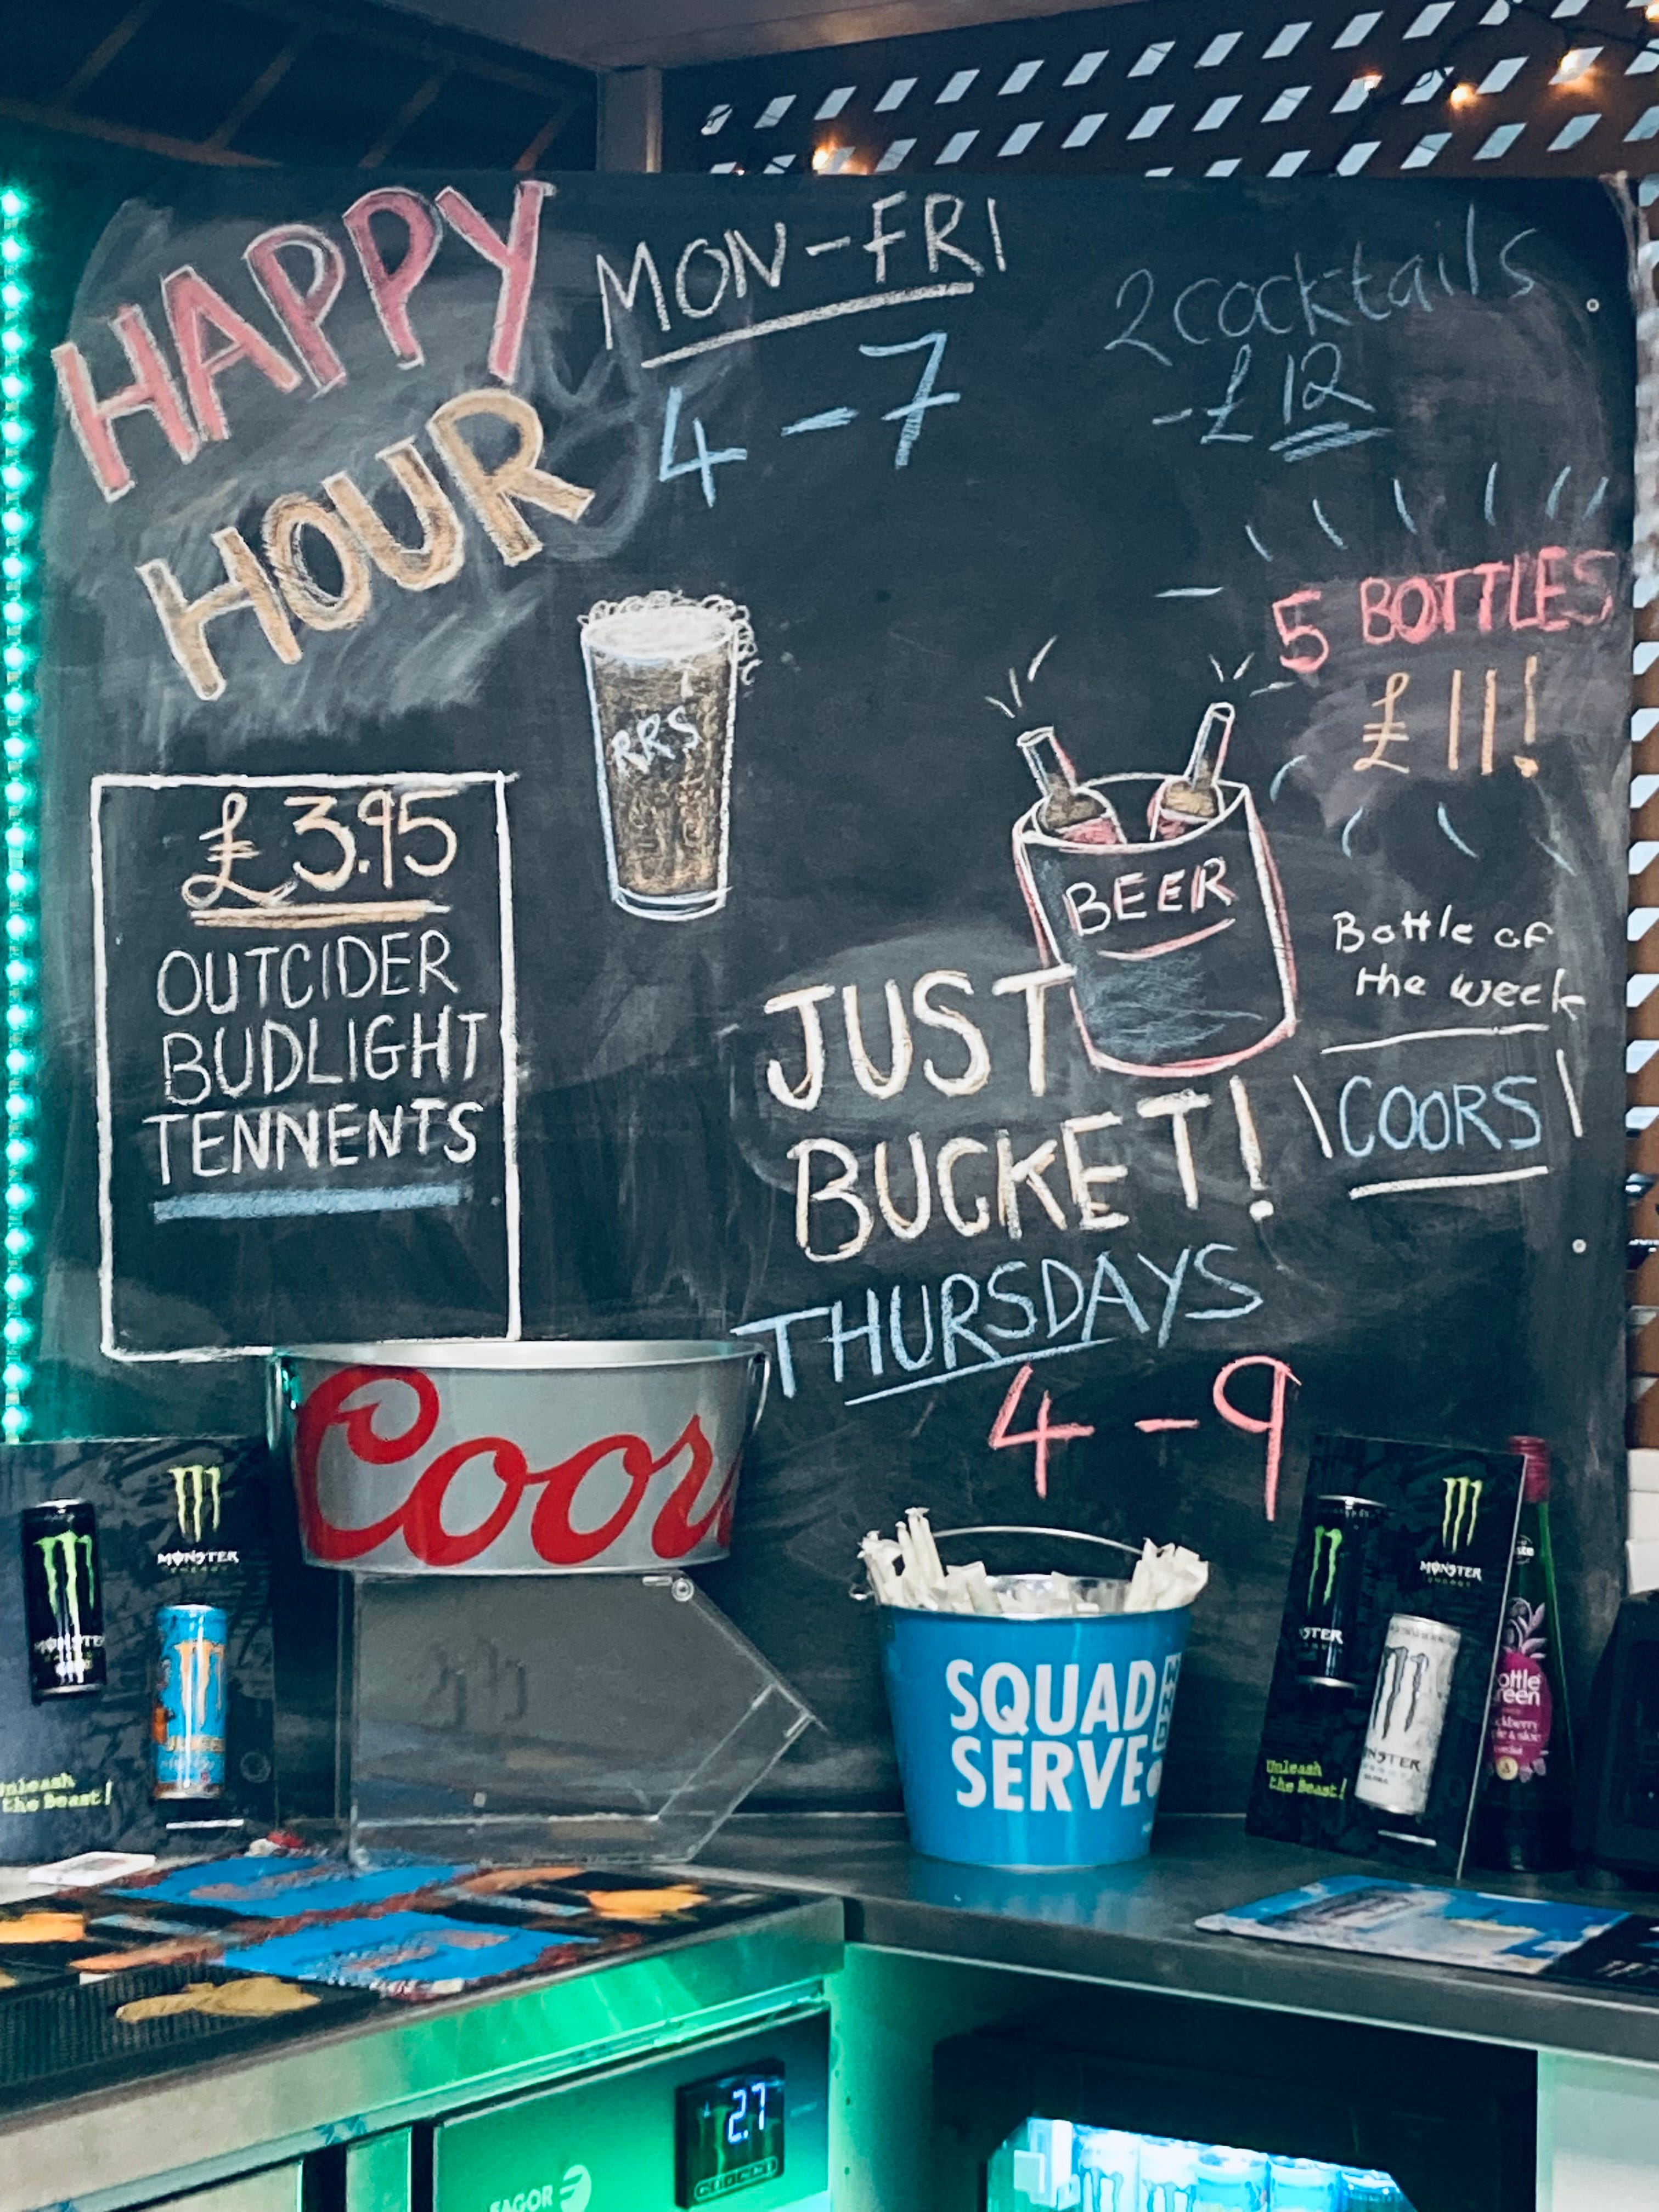 HAPPY
HOUR
MON-FRI
4-7
2 cocktails
-£12
5 BOTTLES
£11!
RRS
£3.95
OUTCIDER
BUDLIGHT
TENNENTS
BEER
JUST
BUCKET!
THURSDAYS
4-9
Bottle of
the week
COORS
Coors
MONSTER
MONSTER
Unleash
the Beast!
SQUAD
SERVE
MONSTER
ENERGY
MONSTER
Unleash
the Beast!
2.7
FAGOR